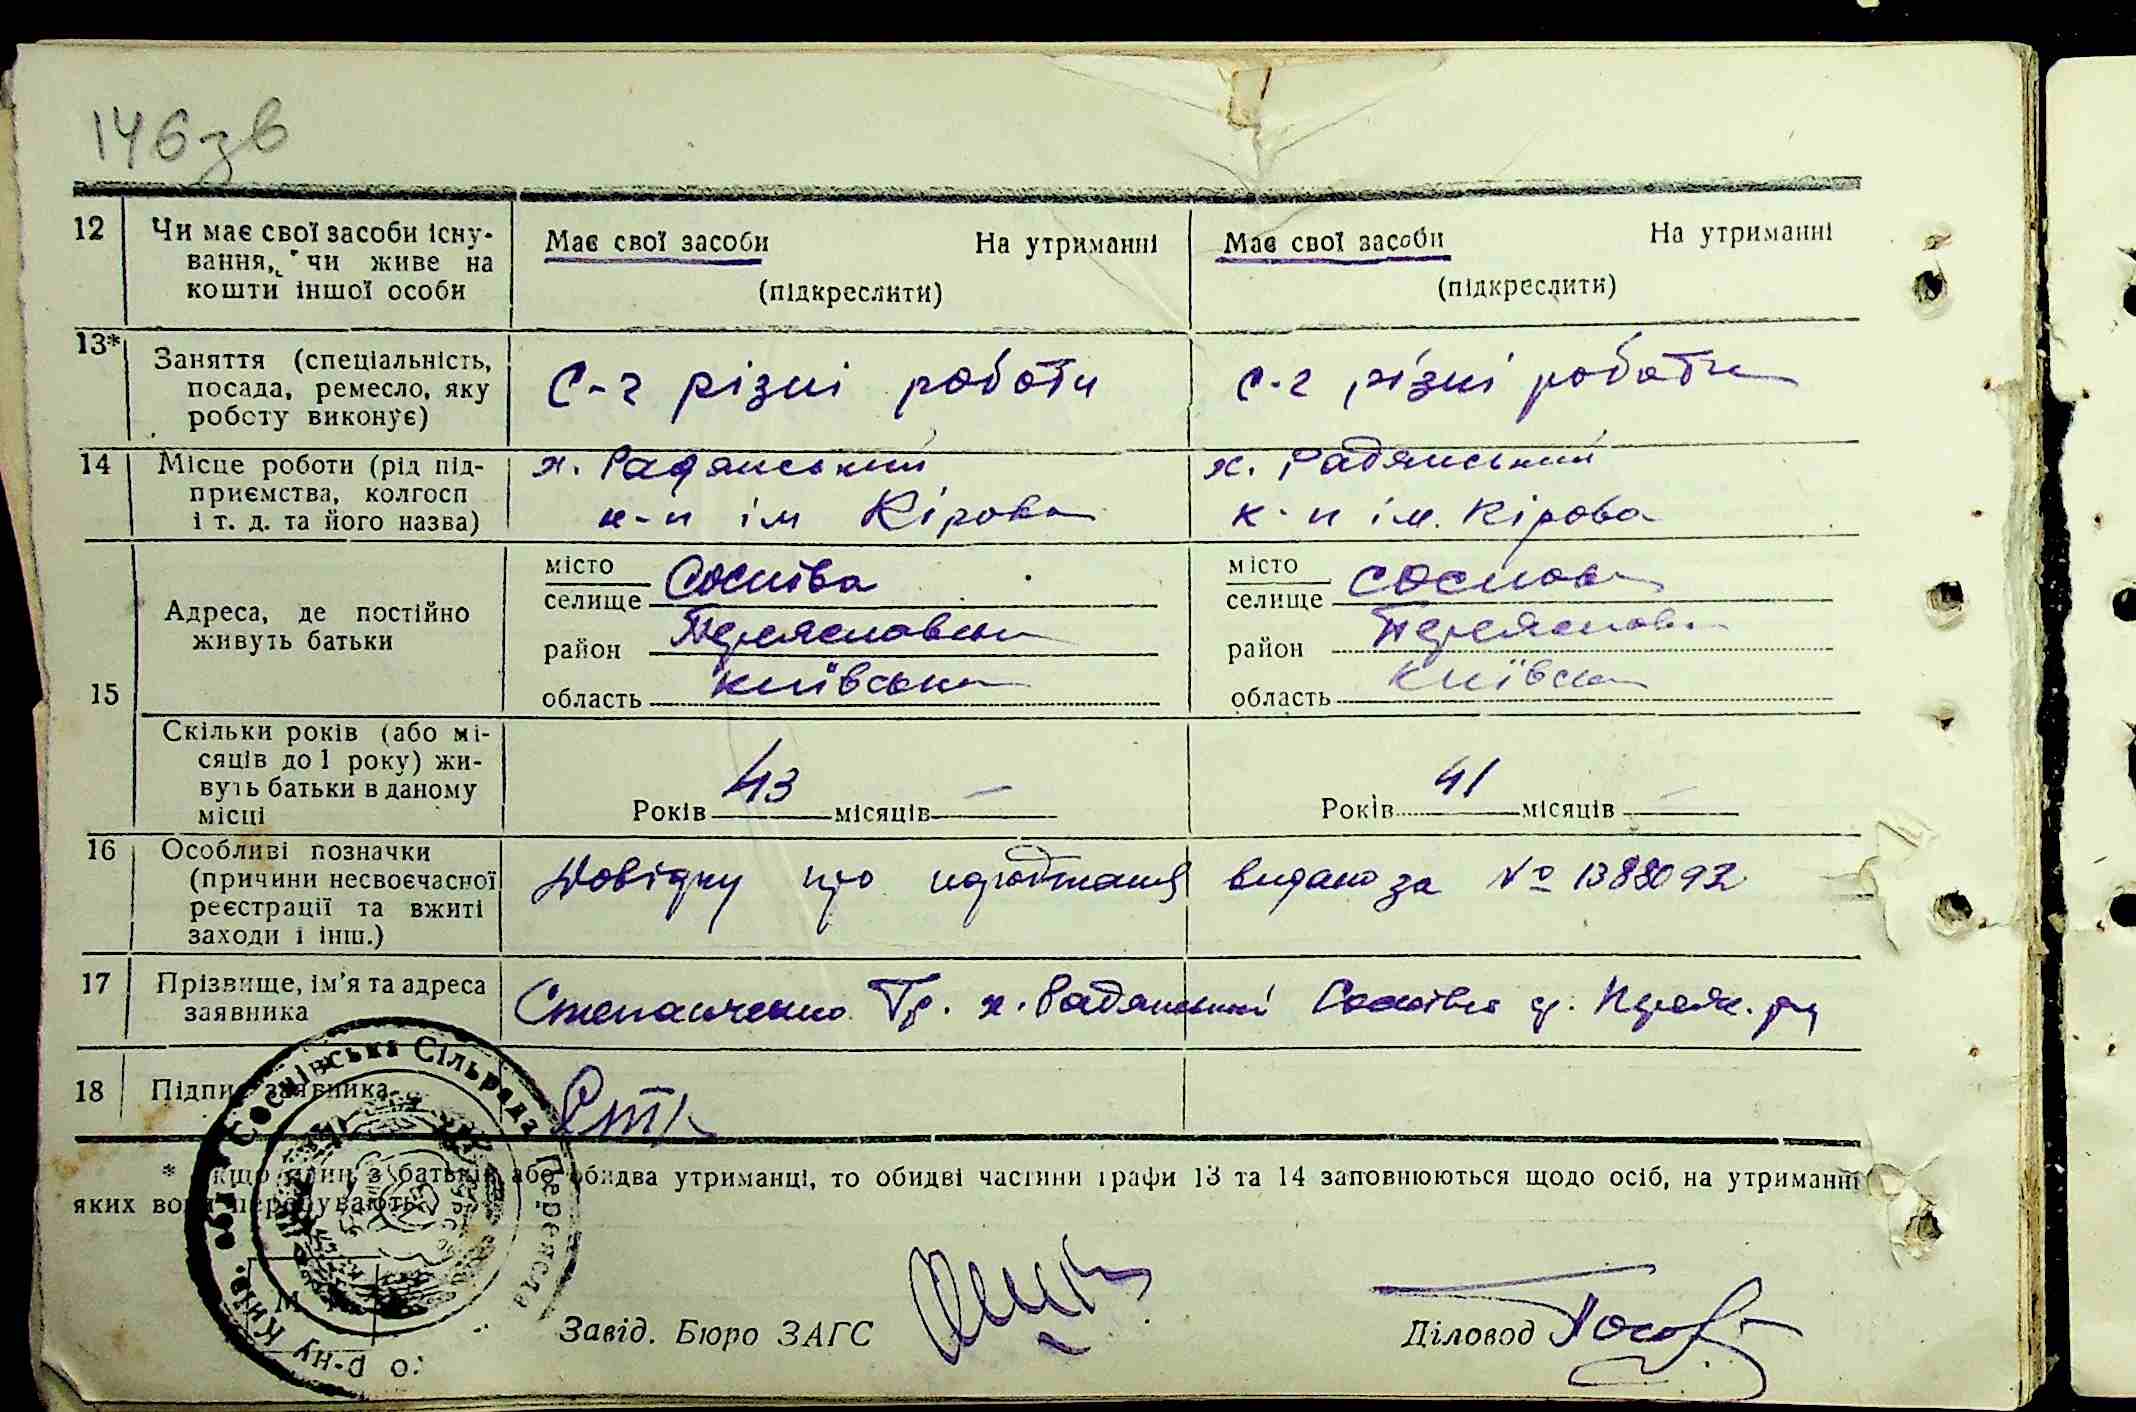 146 зв
12 Чи має свої засоби існу- Має свої засоби На утриманні Має свої засоби На утриманні
вання, чи живе на
кошти іншої особи (підкреслити) (підкреслити)
13* Заняття (спеціальність, С-г різні роботи С-г різні роботи
посада, ремесло, яку
роботу виконує)
14 Місце роботи (рід під- х. Радянський х. Радянський
приємства, колгосп к-п ім Кірова к-п ім. Кірова
і т. д. та його назва)
15 Адреса, де постійно
живуть батьки
місто
селище Соснiва
район Переяславськ
область Київська
місто
селище Соснова
район Переяслав
область Київськ
Скільки років (або мі-
сяців до 1 року) жи-
вуть батьки в даному
місці
Років 43 місяців — Років 41 місяців —
16 Особливі позначки
(причини несвоєчасної Довідку про народження видано за № 1388092
реєстрації та вжиті
заходи і інш.)
17 Прізвище, ім'я та адреса Степанченко Гр. х. Радянський Соснівс Переяс. р-ну
заявника
18 Підпис заявника
* Якщо один з батьків або обидва утриманці, то обидві частини графи 13 та 14 заповнюються щодо осіб, на утриманні
яких вони перебувають.
Соснівська Сільрада Переясла
го р-ну Київ. обл
М
Завід. Бюро ЗАГС Діловод